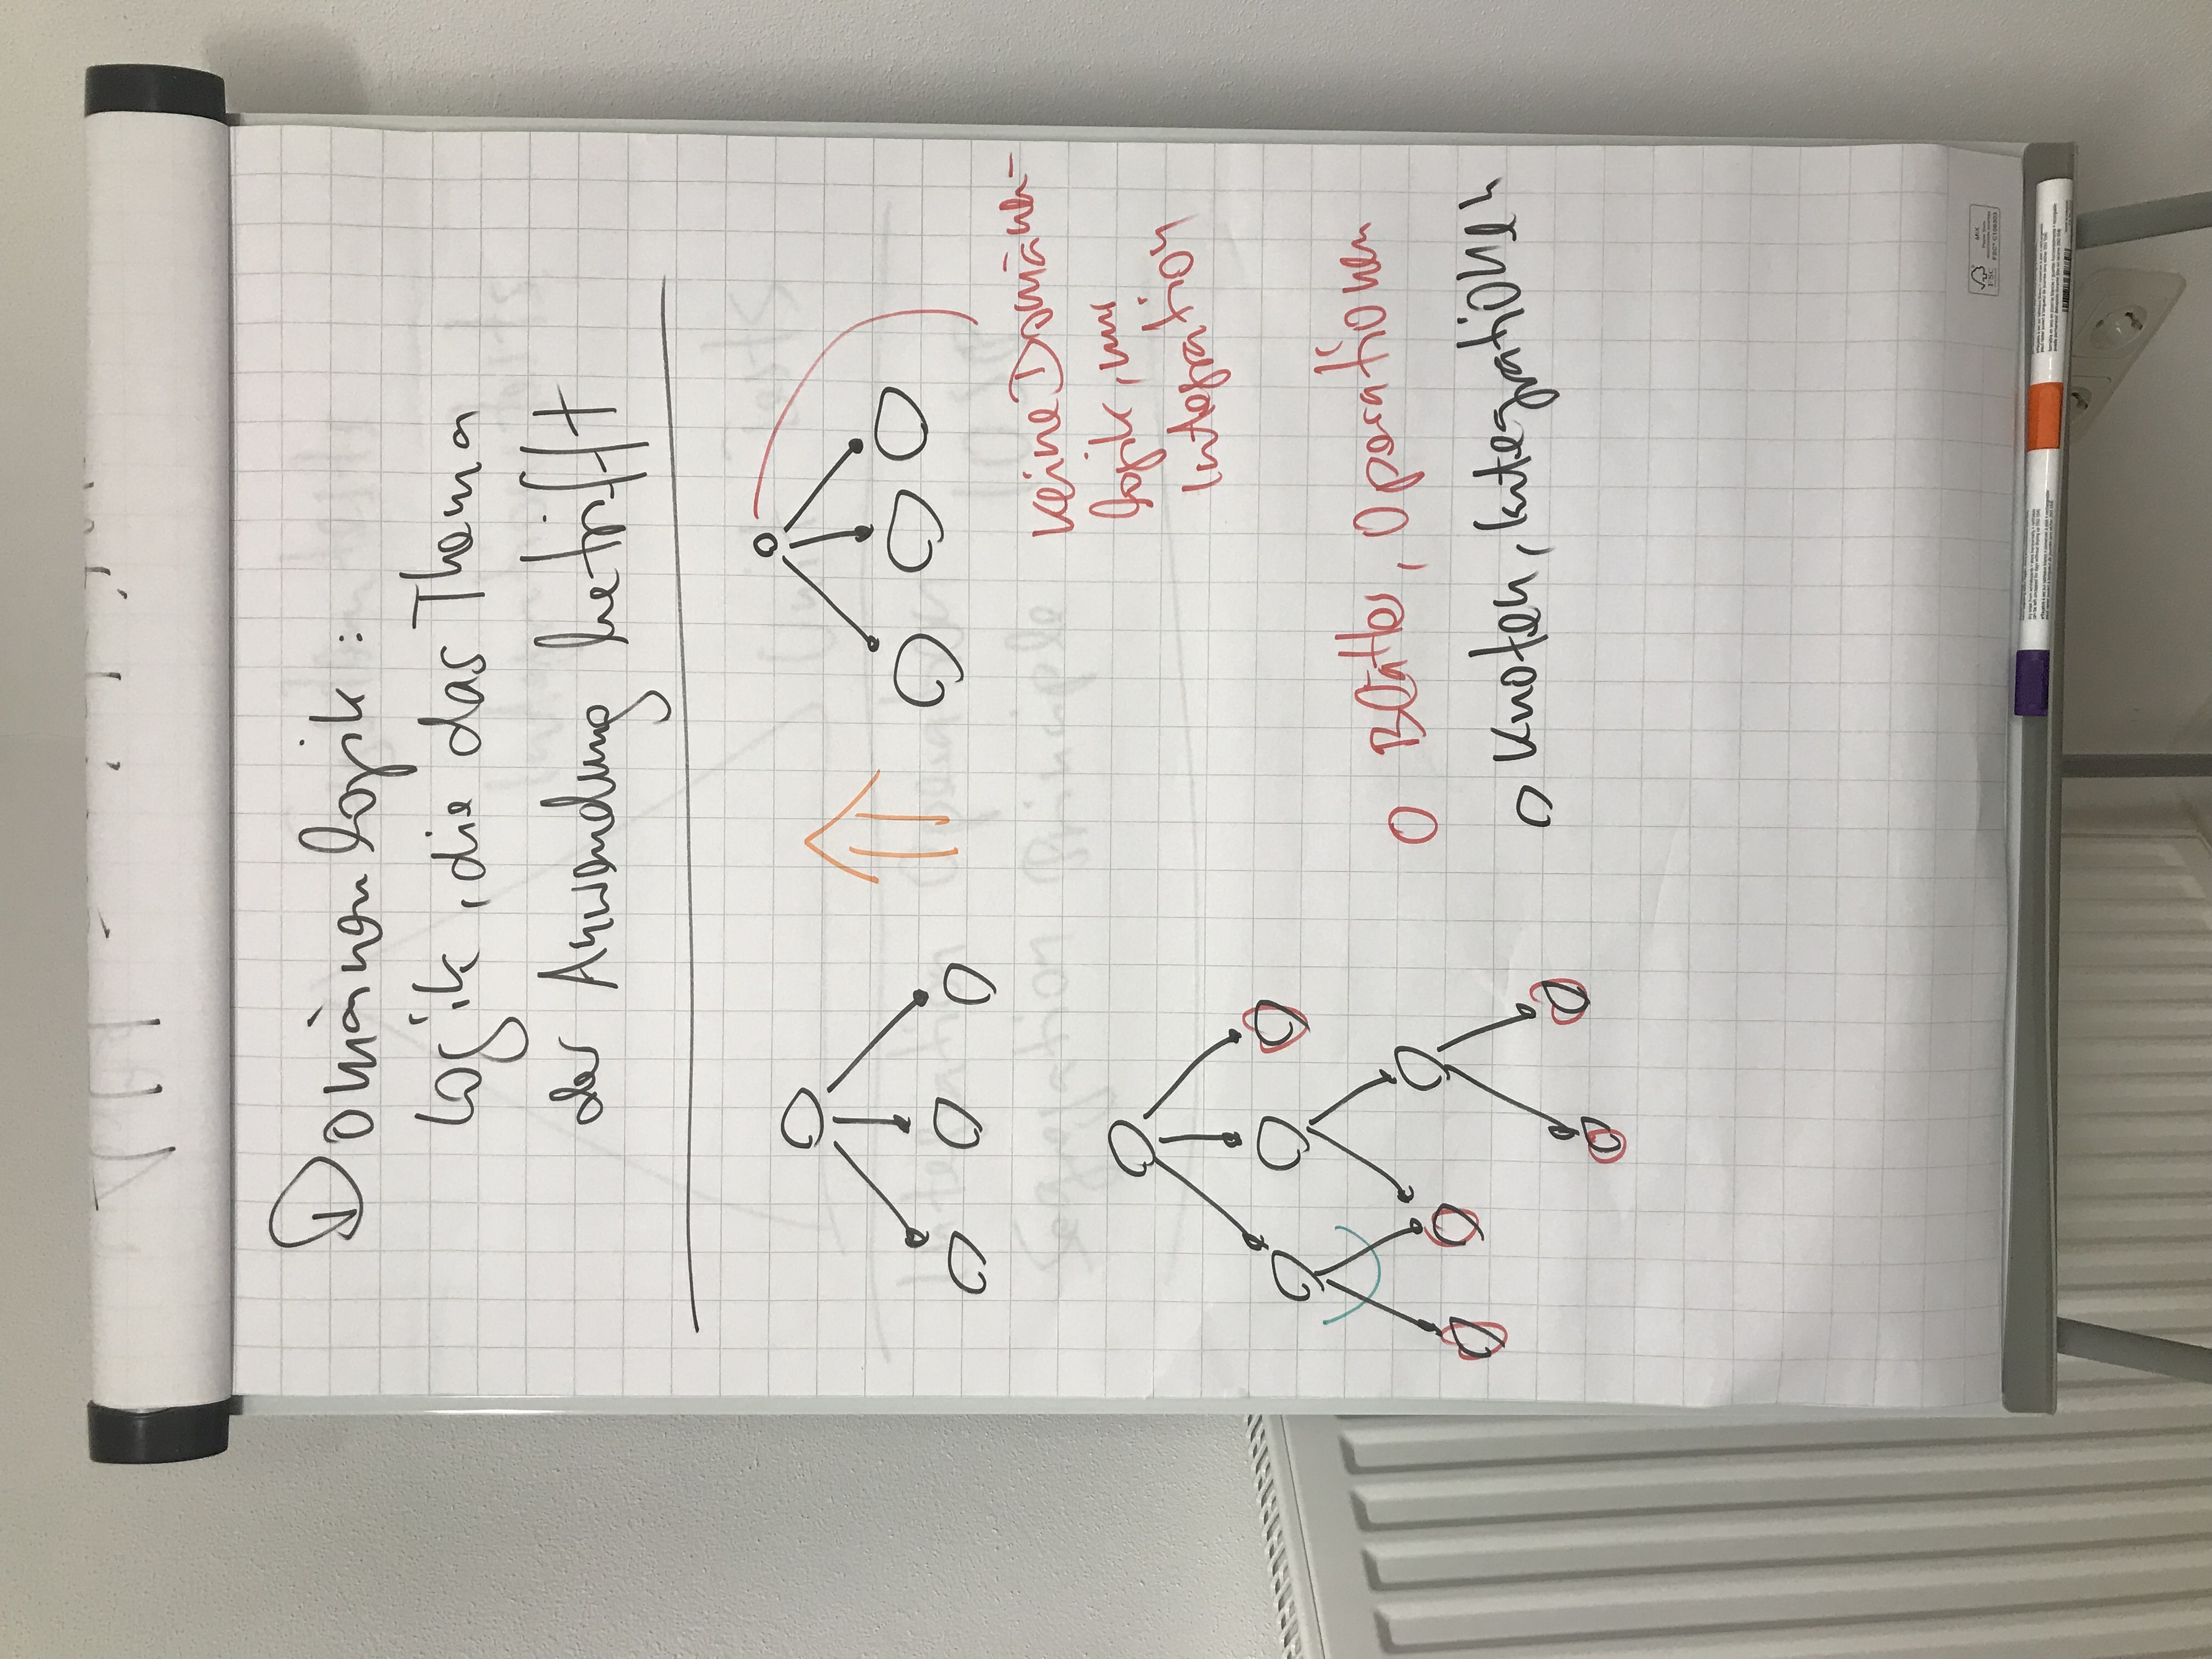 Domänenlogik:
Logik, die das Thema
der Anwendung betrifft
keine Domänen-
logik, nur
Integration
Blätter, Operationen
Knoten, Integrationen
FSC
MIX